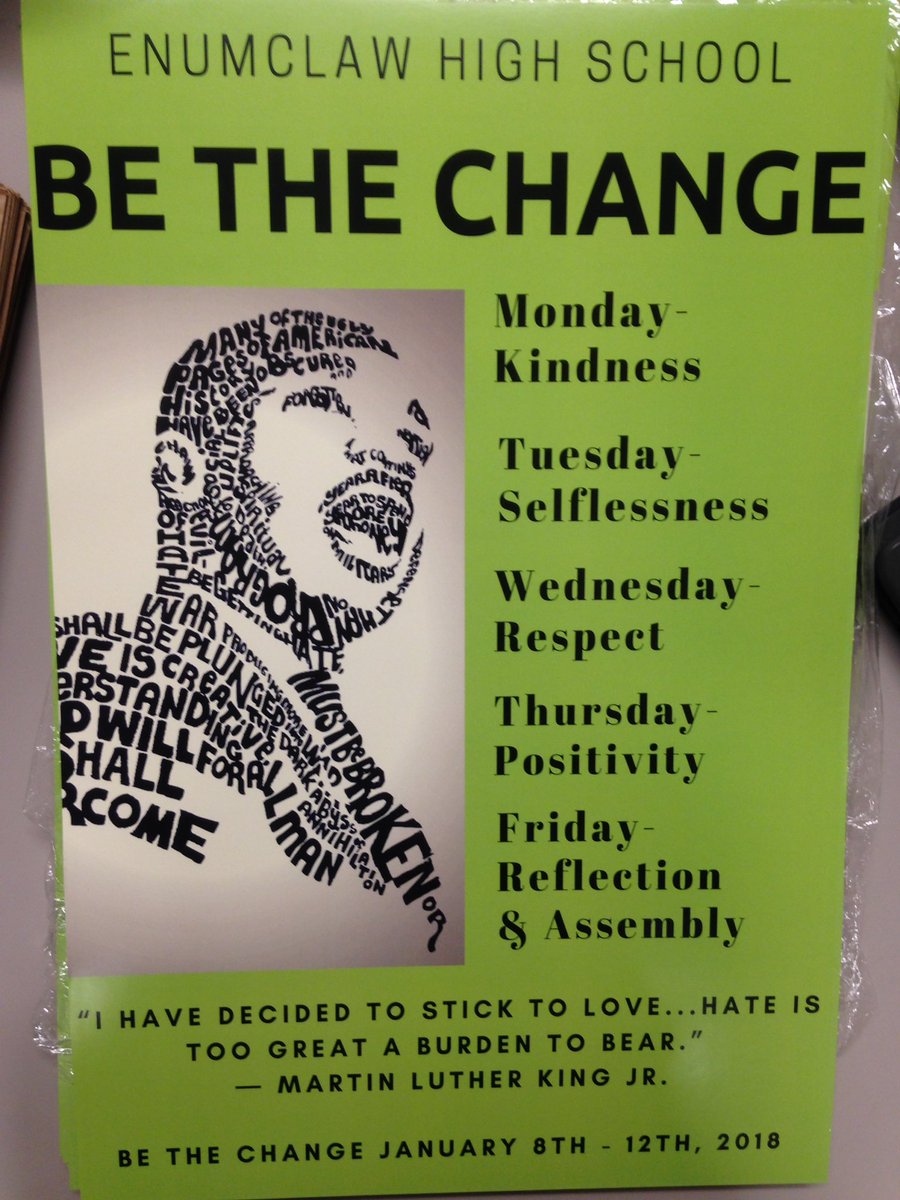 ENUMCLAW HIGH SCHOOL
BE THE CHANGE
MANY OF THE UGLY
OF AMERICAN
PAGES
HISTORY OBSCURED
HAVE BEEN AND
FORGOTTEN
YEAR AFTER
YEAR TO SPEND
MORE
ON MILITARY
PROGRAM
BEGETTING
NO
THAN
WAR
SHALL BE PLUNGED
THE DARK
ABYSS OF
ANNIHILATION
IS CREATIVE
WILL FOR ALL MAN
SHALL
MUST BE BROKEN OR
Monday-
Kindness
Tuesday-
Selflessness
Wednesday-
Respect
Thursday-
Positivity
Friday-
Reflection
& Assembly
“I HAVE DECIDED TO STICK TO LOVE...HATE IS
TOO GREAT A BURDEN TO BEAR.”
— MARTIN LUTHER KING JR.
BE THE CHANGE JANUARY 8TH - 12TH, 2018